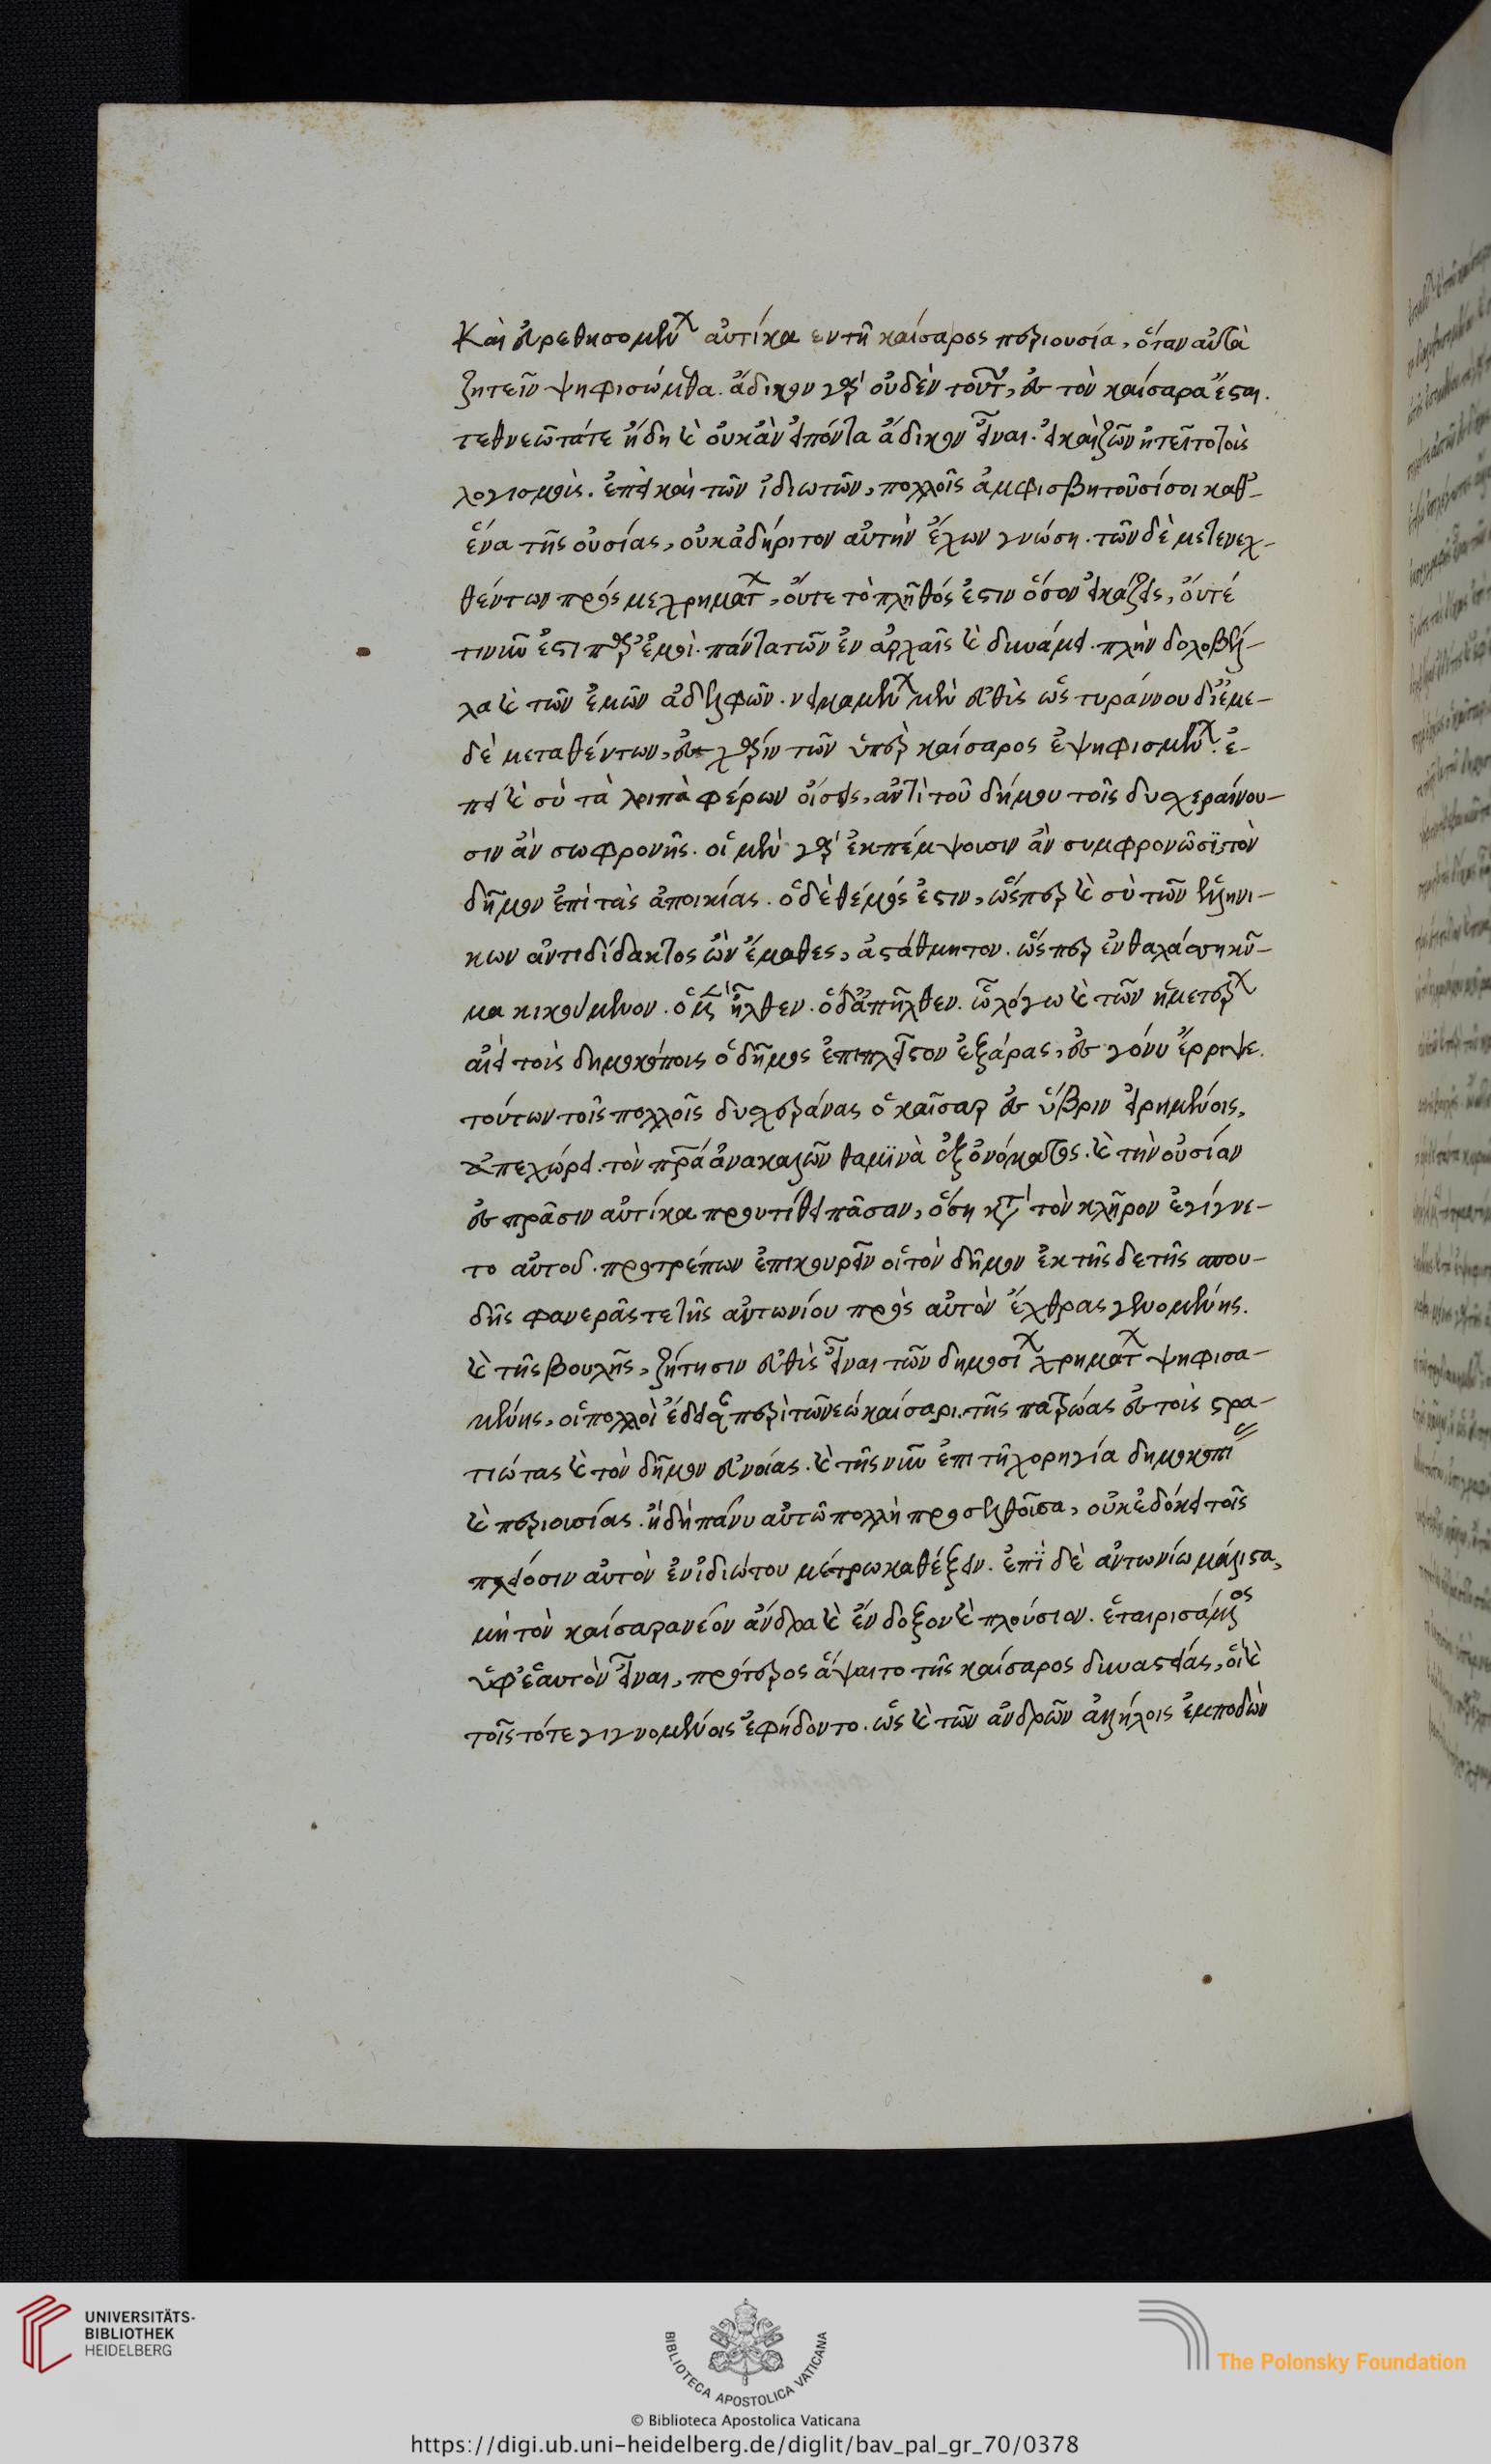 Καὶ εὑρεθησομένων αὐτίκα εν τῆ καίσαρος περιουσία, ὅταν αὐτὰ
ζητεῖν ψηφισώμεθα. ἄδικον γὰρ οὐδὲν τοῦτ', ἐς τὸν καίσαρα ἔσται.
τεθνεῶτά τε ἤδη καὶ οὐκ ἂν εἰπόντα ἄδικον εἶναι. εἰ καὶ ζῶν ἠτεῖτο τοὺς
λογισμοὺς. ἐπεὶ καὶ τῶν ἰδιωτῶν, πολλοῖς ἀμφισβητοῦσί σοι καθ'
ἕνα τῆς οὐσίας, οὐκ ἀδήριτον αὐτὴν ἔχων γνώση. τῶν δὲ μετενεχ-
θέντων πρός με χρημάτων, οὔτε τὸ πλῆθός ἐστιν ὅσον εἰκάζεις, οὔτέ
τι νῦν ἐστι παρ' ἐμοὶ. πάντα τῶν ἐν ἀρχαῖς καὶ δυνάμει. πλὴν δολοβέλ-
λα καὶ τῶν ἐμῶν ἀδελφῶν. νειμαμένων μὲν εὐθὺς ὡς τυράννου δι' ἐμὲ
δὲ μεταθέντων, ἐς χάριν τῶν ὑπὲρ καίσαρος ἐψηφισμένων. ἐ-
πεὶ καὶ σὺ τὰ λοιπὰ φέρων οἴσεις, ἀντὶ τοῦ δήμου τοῖς δυσχεραίνου-
σιν ἂν σωφρονῆς. οἳ μὲν γὰρ ἐκπέμψουσιν ἂν συμφρονῶσϊ, τὸν
δῆμον ἐπὶ τὰς ἀποικίας. ὁ δὲ δῆμός ἐστιν, ὥσπερ καὶ σὺ τῶν ἑλληνι-
κων ἀντιδίδακτος ὢν ἔμαθες, ἀστάθμητον. ὥσπερ ἐν θαλάσση κῦ-
μα κινούμενον. ὁ μὲν ἦλθεν. ὁ δ' ἀπῆλθεν. ὧ λόγω καὶ τῶν ἡμετέρων
αἰεὶ τοὺς δημοκόπους ὁ δῆμος ἐπιπλεῖστον ἐξάρας, ἐς γόνυ ἔρριψε.
τούτων τοῖς πολλοῖς δυσχεράνας ὁ καῖσαρ ἐς ὕβριν εἰρημένοις,
ἀπεχώρει. τὸν πατέρα ἀνακαλῶν θαμϊνὰ ἐξ ὀνόματος. καὶ τὴν οὐσίαν
ἐς πρᾶσιν αὐτίκα προυτίθει πᾶσαν, ὅση κατὰ τὸν κλῆρον ἐγίγνε-
το αὐτοῦ. προτρέπων ἐπικουρεῖν οἱ τὸν δῆμον ἐκ τῆσδε τῆς σπου-
δῆς φανερᾶς τε τῆς ἀντωνίου πρὸς αὐτὸν ἔχθρας γενομένης.
καὶ τῆς βουλῆς, ζήτησιν εὐθὺς εἶναι τῶν δημοσίων χρημάτων ψηφισα-
μένης, οἱ πολλοὶ ἐδεδοίκεσαν περὶ τῶ νέω καίσαρι. τῆς πατρώας ἐς τοὺς στρα-
τιώτας καὶ τὸν δῆμον εὐνοίας. καὶ τῆς νῦν ἐπι τῆ χορηγία δημοκοπίας
καὶ περιουσίας. ἣ δὴ πάνυ αὐτῶ πολλὴ προσελθοῦσα, οὐκ ἐδόκει τοῖς
πλείοσιν αὐτὸν ἐν ἰδιώτου μέτρω καθέξειν. ἐπὶ δὲ ἀντωνίω μάλιστα,
μὴ τὸν καίσαρα νέον ἄνδρα καὶ ἔνδοξον καὶ πλούσιον. ἑταιρισάμενος
ὑφ' ἑαυτὸν εἶναι, πρότερος ἅψαιτο τῆς καίσαρος δυναστείας, οἳ καὶ
τοῖς τότε γιγνομένοις ἐφήδοντο. ὡς καὶ τῶν ἀνδρῶν ἀλλήλοις ἐμποδὼν
UNIVERSITÄTS-
BIBLIOTHEK
HEIDELBERG
BIBLIOTECA APOSTOLICA VATICANA
The Polonsky Foundation
© Biblioteca Apostolica Vaticana
https://digi.ub.uni-heidelberg.de/diglit/bav_pal_gr_70/0378